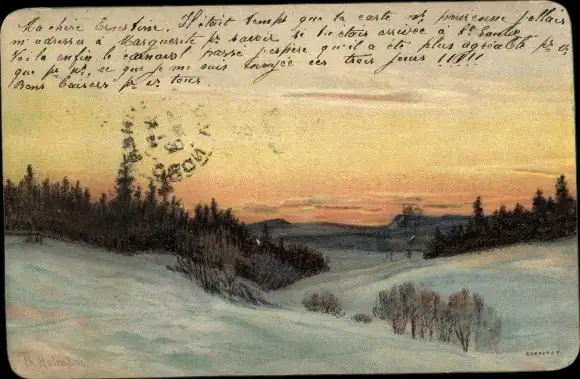 Ma chère Ernestine. Il était temps que ta carte me parvienne j'allais
m'adresser à Marguerite pr savoir si tu étais arrivée à
Voilà enfin le carnaval passé j'espère qu'il a été plus agréable pr
que pr ns, ce que je me suis ennuyée ces trois jours !!!!!
Bons baisers pr vs tous.
Th. Holmboe